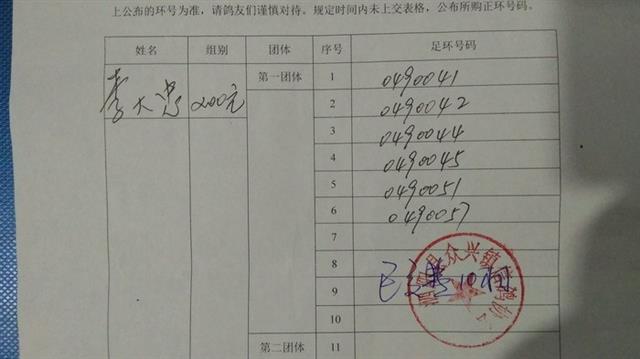 上公布的环号为准，请鸽友们谨慎对待。规定时间内未上交表格，公布所购正环号码。
姓名 组别 团体 序号 足环号码
李大忠 200元 第一团体 1 0490041
2 0490042
3 0490044
4 0490045
5 0490051
6 0490057
7
8
9
10
第二团体 11
已交
县众兴镇